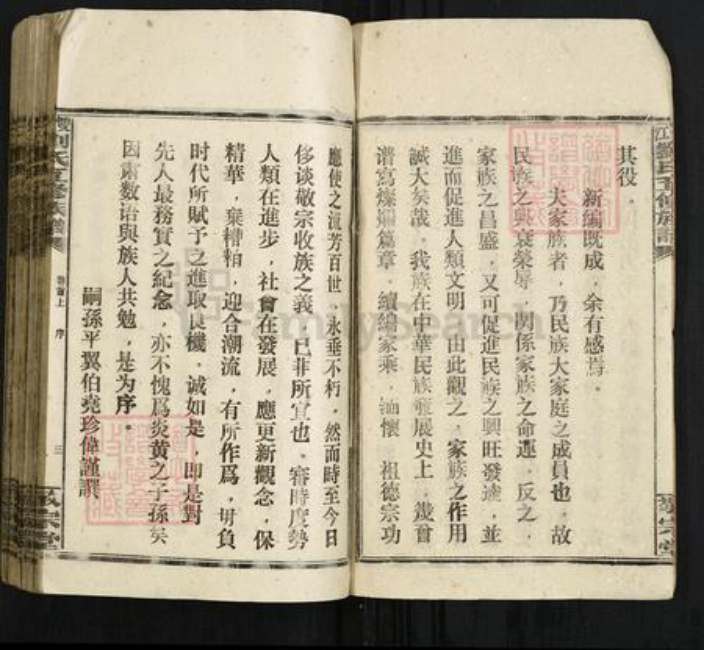 其役．
新編既成，余有感焉．
夫家族者，乃民族大家庭之成員也，故
民族之興衰榮辱，関係家族之命運．反之，
家族之昌盛，又可促進民族之興旺發達，並
進而促進人類文明．由此觀之，家族之作用
誠大矣哉．我族在中華民族發展史上，幾曾
譜寫燦爛篇章．續編家乘，緬懷 祖德宗功
應使之流芳百世，永垂不朽，然而時至今日
侈谈敬宗收族之義，已非所宜也．審時度勢
人類在進步，社會在發展，應更新觀念，保
精華，棄糟粕，迎合潮流，有所作爲，毋負
时代所賦予之進取良機．诚如是，即是對
先人最務實之紀念，亦不愧爲炎黄之子孫矣
因肅数语與族人共勉，是为序。
嗣孫平翼伯堯珍偉謹譔
劉氏五修族譜
卷首上 序 三
FamilySearch